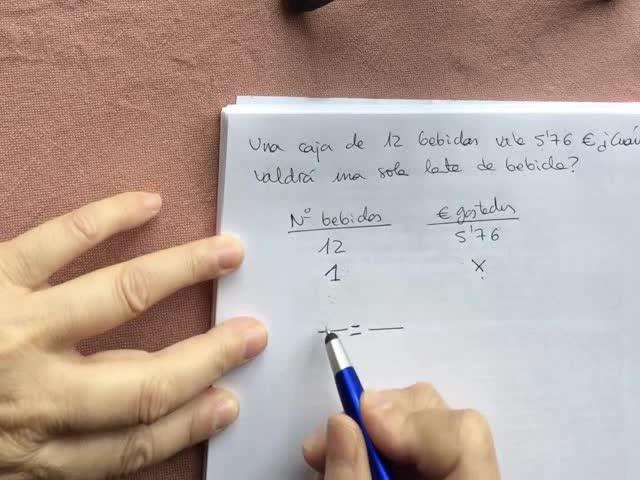 Una caja de 12 bebidas vale 5'76 € ¿Cuán
valdrá una sola lata de bebida?
Nº bebidas € gastados
12 5'76
1 x
— = —